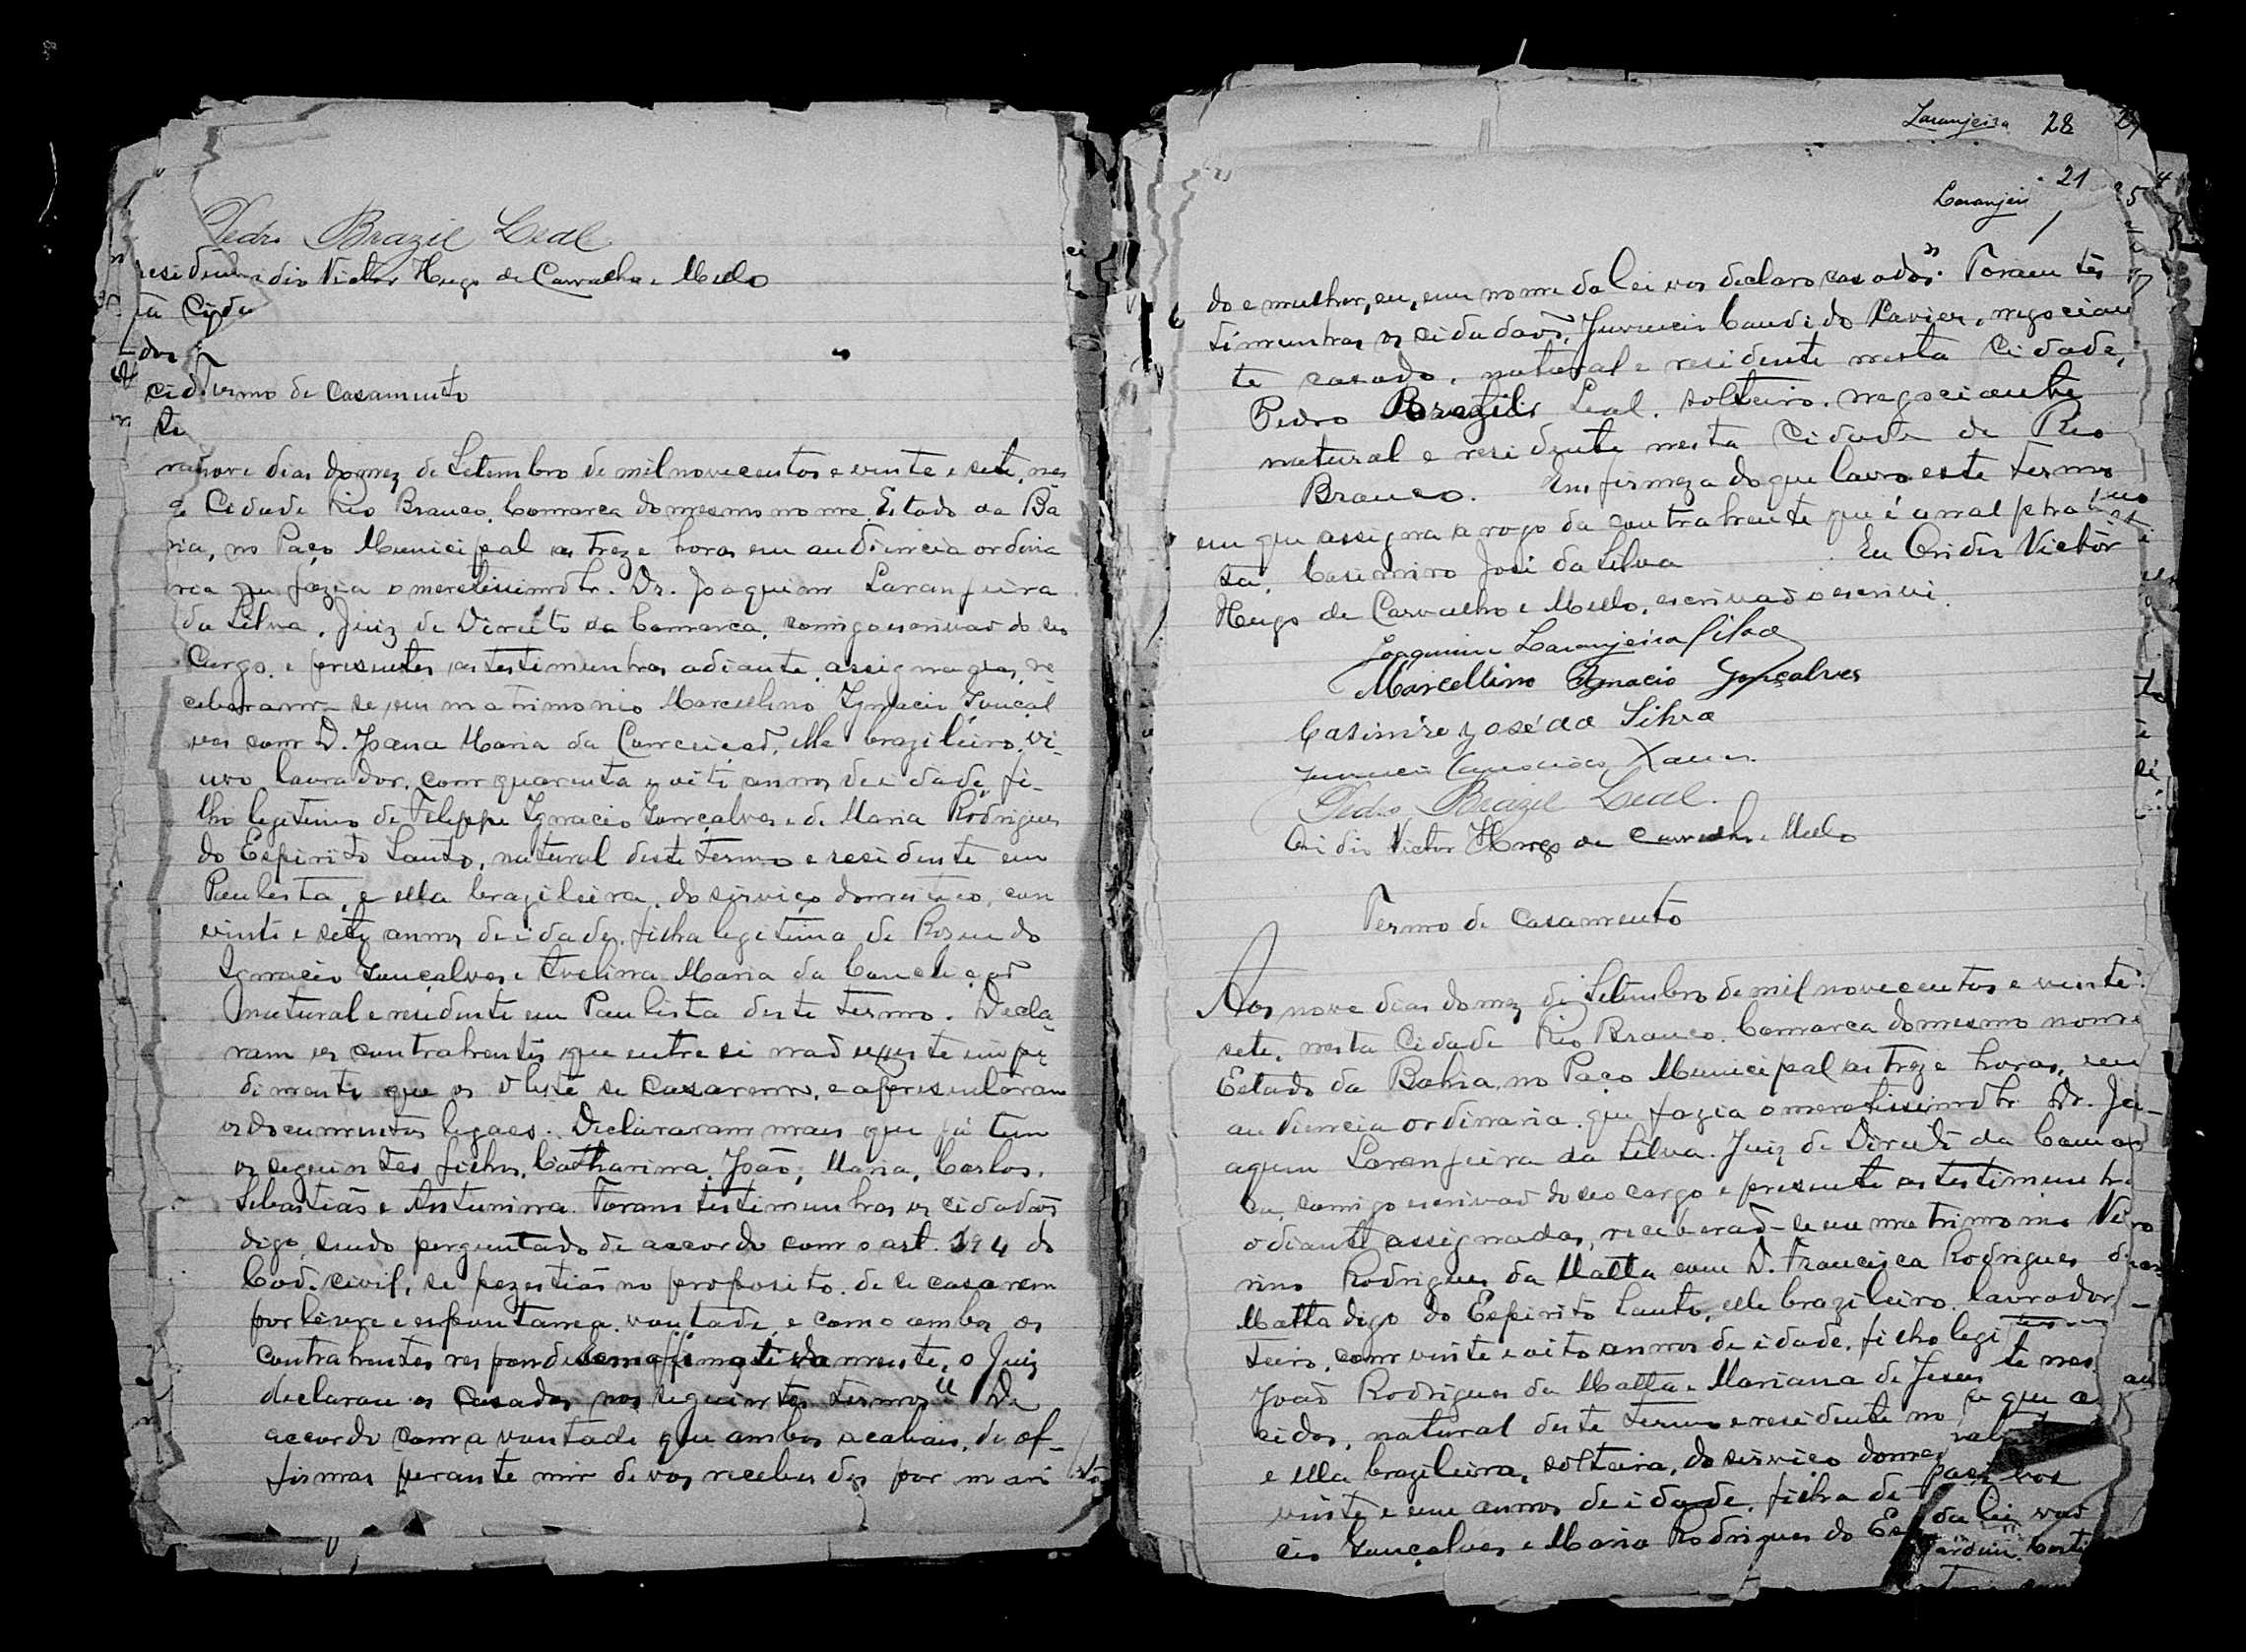 Pedro Brazil Leal
Victor Hugo de Carvalho e Mello
Termo de Casamento
nove dias do mez de Setembro de mil novecentos e vinte e sete, nes
Cidade Rio Branco, Comarca do mesmo nome Estado da Ba
hia, no Paço Municipal as treze horas em audiencia ordina
ria que fazia o meretissimo Sr. Dr. Joaquim Laranjeira
da Silva, Juiz de Direito da Comarca, comigo escrivão do seo
Cargo, e presentes as testimunhas adiante assignadas, re
ceberam-se em matrimonio Marcellino Ignacio Gonçal
ves com D. Joana Maria da Conceição, elle brazileiro, vi-
uvo lavrador, com quarenta e oito annos de idade, fi-
lho legitimo de Felippe Ignacio Gonçalves e de Maria Rodrigues
do Espirito Santo, natural deste termo e residente em
Paulista, e ella brazileira, do serviço domestico, com
vinte e sete annos de idade, filha legitima de Rosendo
Ignacio Gonçalves e Avelina Maria da Conceição
natural e residente em Paulista deste termo. Decla-
ram os contrahentes que entre si não existe impe
dimento que os obste se casarem, e apresentaram
os documentos legaes. Declararam mais que já tem
os seguintes filhos, Catharina, João, Maria, Carlos,
Sebastião e Antunina. Foram testimunhas os cidadãos
digo, sendo perguntado de accordo com o art. 194 do
Cod. civil, se pezestião no proposito de se casarem
por livre e espontanea vontade, e como ambos os
contrahentes responderam affirmativamente, o Juiz
declarou os casados nos seguintes termos "De
accordo com a vontade que ambos acabais de af-
firmar perante mim de vos receber des por mari
Laranjeira 28
21
Laranjeir
do e mulher, eu, em nome da lei vos declaro casados". Foram tes
timunhas os cidadãos, Juvencio Candido Xavier, negocian
te casado, natural e residente nesta Cidade,
Pedro Brazil Leal, solteiro, negociante
natural e residente nesta Cidade de Rio
Branco. Em firmeza do que lavro este termo
em que assigna a rogo da contrahente que é analphabe
ta, Casimiro José da Silva Eu Victor
Hugo de Carvalho e Mello, escrivão o escrivi.
Joaquim Laranjeira Silva
Marcellino Ignacio Gonçalves
Casimiro José da Silva
Xavier
Pedro Brazil Leal.
Victor Hugo de Carvalho e Mello
Termo de Casamento
Aos nove dias do mez de Setembro de mil novecentos e vinte e
sete, nesta Cidade Rio Branco, Comarca do mesmo nome
Estado da Bahia, no Paço Municipal as treze horas, em
audiencia ordinaria que fazia o meretissimo Sr. Dr. Jo-
aquim Laranjeira da Silva. Juiz de Direito da Comar
ca, comigo escrivão do seo cargo e presente as testimunh
adiante assignadas, receberão-se em matrimonio
Rodrigues da Matta com D. Francisca Rodrigues da
Matta digo do Espirito Santo, elle brazileiro, lavrador
teiro, com vinte e oito annos de idade, filho legi
João Rodrigues da Matta e Mariana de Jesus
cidos, natural deste termo e residente no
e ella brazileira, solteira, do serviço domes
vinte e um annos de idade, filha de
cio Gonçalves e Maria Rodrigues do Es